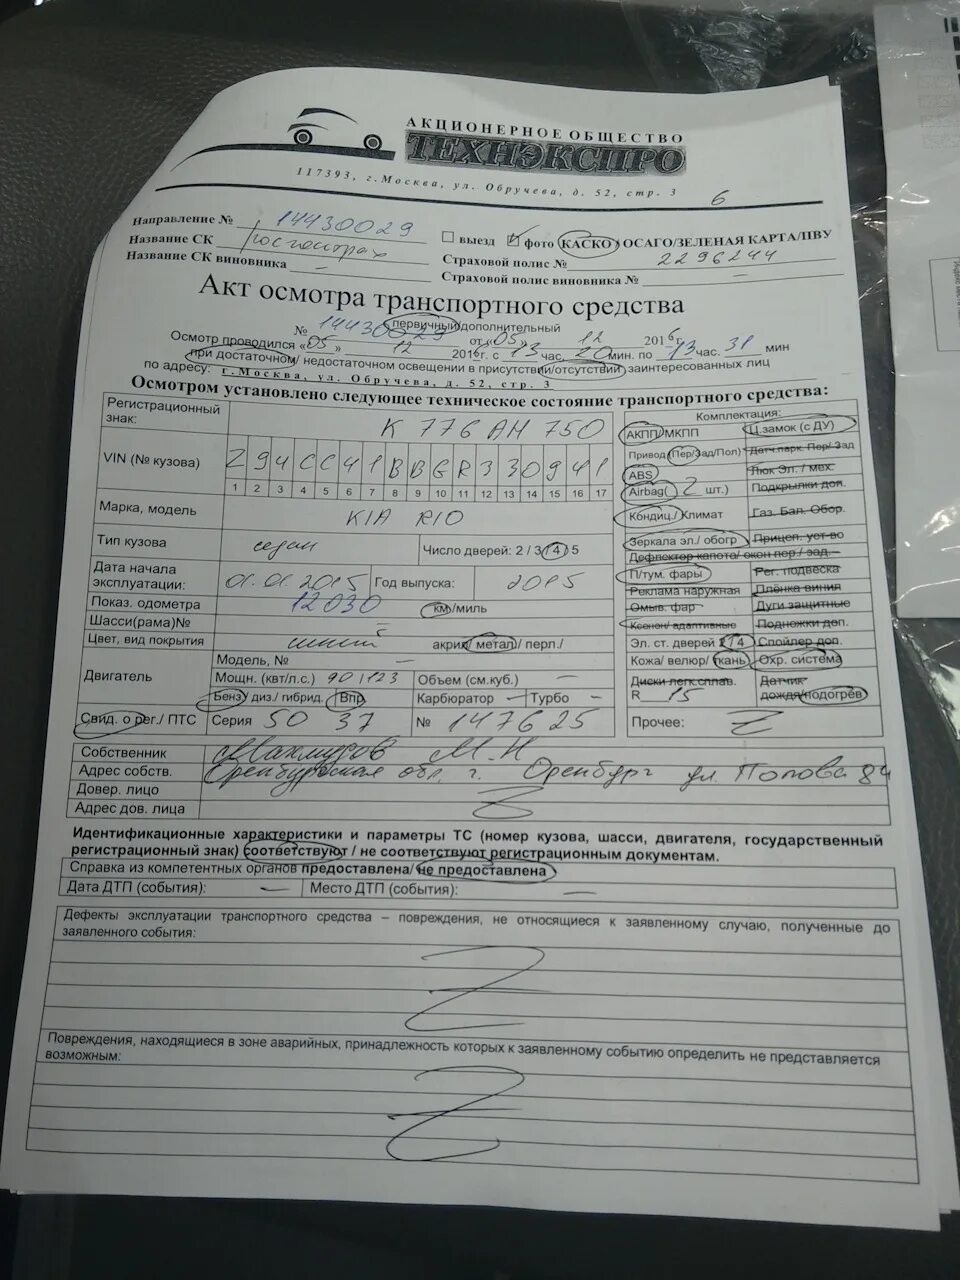 АКЦИОНЕРНОЕ ОБЩЕСТВО
ТЕХНЭКСПРО
117393, г.Москва, ул. Обручева, д. 52, стр. 3
6
Направление № 14430029
выезд фото КАСКО/ОСАГО/ЗЕЛЕНАЯ КАРТА/ПВУ
Название СК Росгосстрах
Страховой полис № 2296244
Название СК виновника –
Страховой полис виновника № –
Акт осмотра транспортного средства
№ 14430029 первичный/дополнительный
Осмотр проводился «05» 12 2016г. с 13 час. 20 мин. по 13 час. 31 мин
от «05» 12 2016г.
при достаточном/ недостаточном освещении в присутствии/отсутствии заинтересованных лиц
по адресу: г.Москва, ул. Обручева, д. 52, стр. 3
Осмотром установлено следующее техническое состояние транспортного средства:
Регистрационный знак: К 776 АН 750
VIN (№ кузова) Z94CC41BBGR330941
1 2 3 4 5 6 7 8 9 10 11 12 13 14 15 16 17
Марка, модель KIA RIO
Тип кузова седан Число дверей: 2 / 3 / 4 / 5
Дата начала эксплуатации: 01.01.2015 Год выпуска: 2015
Показ. одометра 12030 км/миль
Шасси(рама)№ –
Цвет, вид покрытия синий акрил/ метал/ перл./
Двигатель
Модель, № –
Мощн. (квт/л.с.) 90/123 Объем (см.куб.) –
Бенз/ диз./ гибрид. Впр Карбюратор – Турбо –
Свид. о рег./ ПТС Серия 50 37 № 147625
Комплектация:
АКПП/ МКПП Ц.замок (с ДУ)
Привод (Пер/Зад/Пол) Датч.парк. Пер/ Зад
ABS Люк Эл. / мех.
Airbag( 2 шт.) Подкрылки доп.
Кондиц./ Климат Газ. Бал. Обор.
Зеркала эл./ обогр Прицеп. уст-во
Дефлектор капота/ окон пер./ зад.
П/тум. фары Рег. подвеска
Реклама наружная Плёнка винил
Омыв. фар Дуги защитные
Ксенон/ адаптивные Подножки доп.
Эл. ст. дверей 2/ 4 Спойлер доп.
Кожа/ велюр/ ткань Охр. система
Диски легк.сплав. Датчик
R 15 дождя/подогрев
Прочее: Z
Собственник Махмудов М.Н
Адрес собств. Оренбургская обл. г. Оренбург ул. Попова 84
Довер. лицо
Адрес дов. лица
Z
Идентификационные характеристики и параметры ТС (номер кузова, шасси, двигателя, государственный
регистрационный знак) соответствуют / не соответствуют регистрационным документам.
Справка из компетентных органов предоставлена/ не предоставлена
Дата ДТП (события): – Место ДТП (события): –
Дефекты эксплуатации транспортного средства – повреждения, не относящиеся к заявленному случаю, полученные до
заявленного события:
Z
Повреждения, находящиеся в зоне аварийных, принадлежность которых к заявленному событию определить не представляется
возможным:
Z